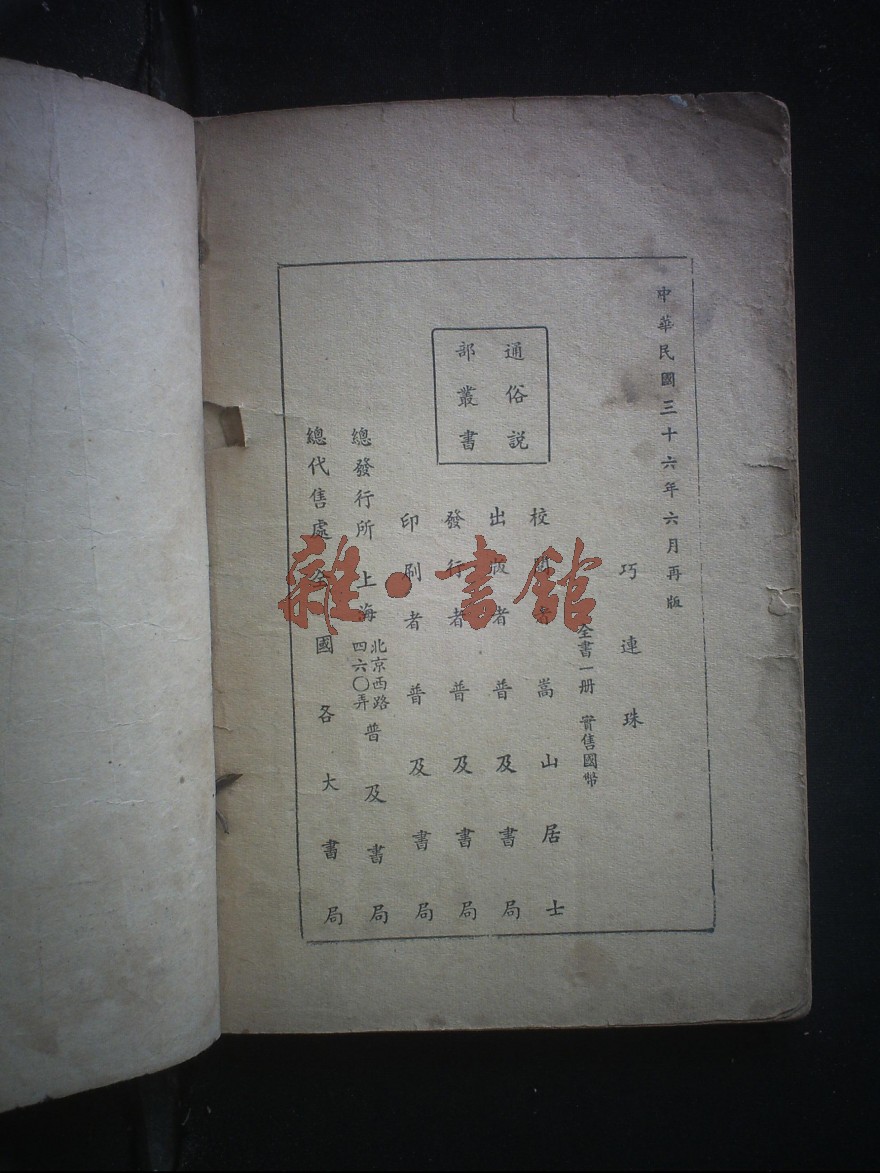 中華民國三十六年六月再版
巧連珠
全書一册 實售國幣
通俗説
部叢書
校閱者嵩山居士
出版者普及書局
發行者普及書局
印刷者普及書局
總發行所 上海 北京西路
四六〇弄 普及書局
總代售處全國各大書局
雜·書館